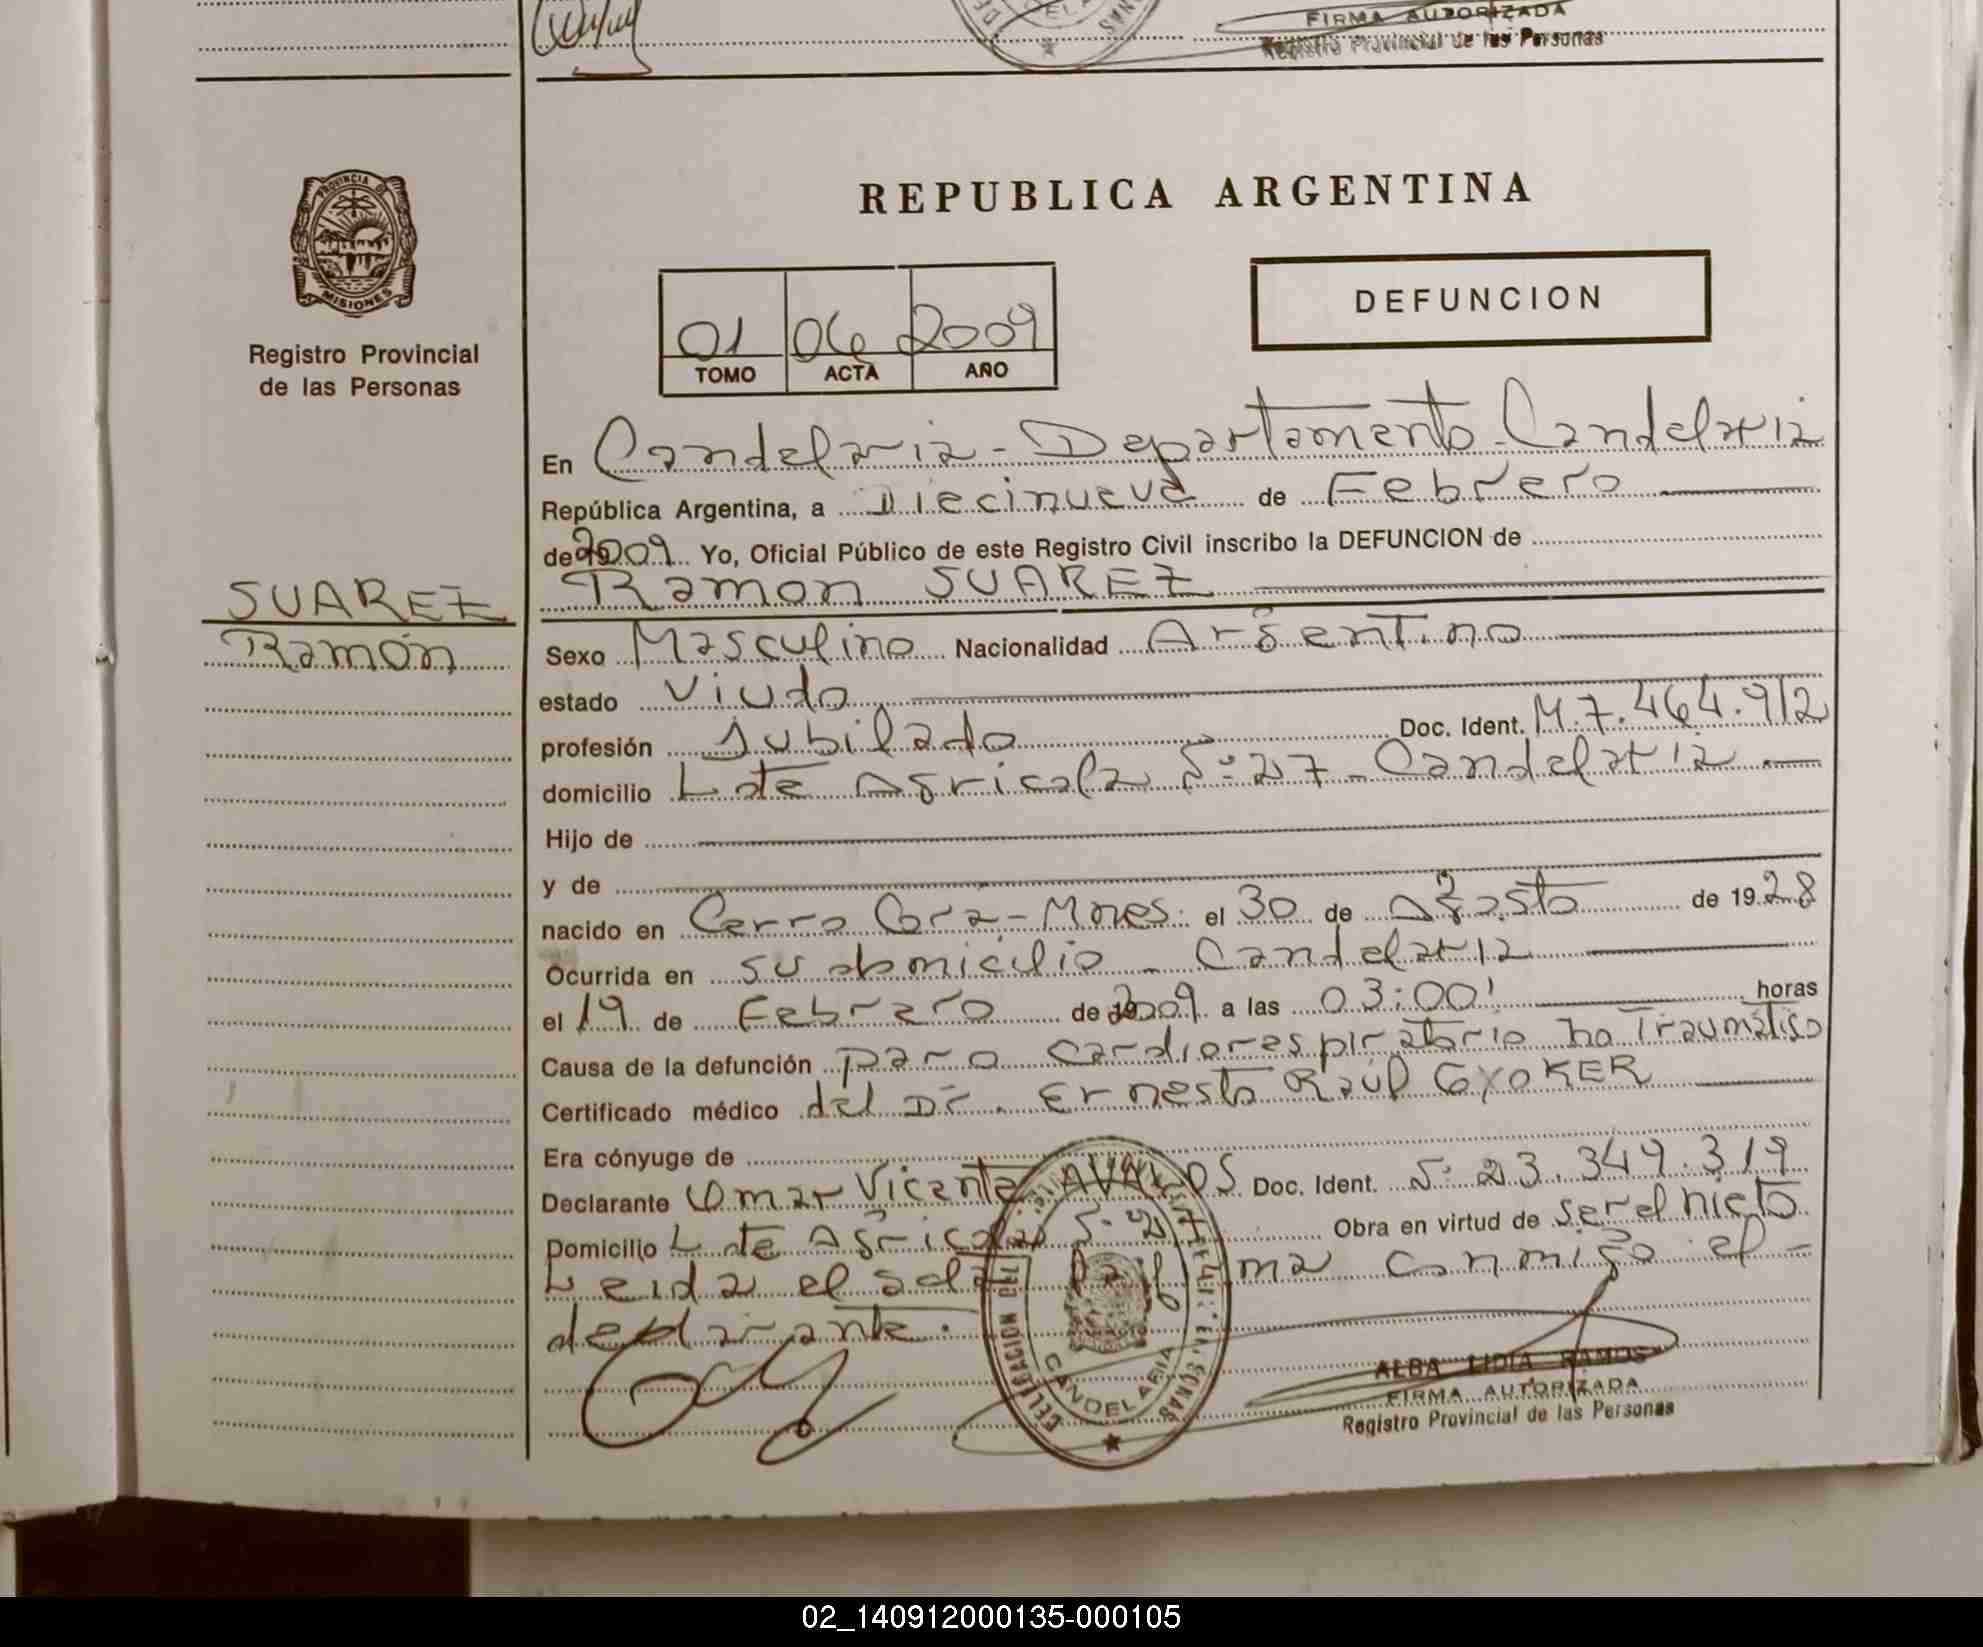 FIRMA AUTORIZADA
Registro Provincial de las Personas
PROVINCIA DE
MISIONES
Registro Provincial
de las Personas
SUAREZ
Ramón
REPUBLICA ARGENTINA
DEFUNCION
01 06 2009
TOMO ACTA AÑO
En Candelaria - Departamento Candelaria
República Argentina, a Diecinueve de Febrero
de 2009 Yo, Oficial Público de este Registro Civil inscribo la DEFUNCION de
Ramon SUAREZ
Sexo Masculino Nacionalidad Argentino
estado Viudo
profesión Jubilado Doc. Ident. M.7.464.912
domicilio Lote Agricola Nº 27 - Candelaria
Hijo de
y de
nacido en Cerro Cora - Mnes. el 30 de Agosto de 1928
Ocurrida en su domicilio - Candelaria
el 19 de Febrero de 2009 a las 03:00' horas
Causa de la defunción paro cardiorespiratorio no Traumático
Certificado médico del Dr. Ernesto Raúl GYOKER
Era cónyuge de
Declarante Omar Vicente AVALOS Doc. Ident. Nº 23.349.319
Domicilio Lote Agricola Nº 27 Obra en virtud de ser el nieto
Leida el acta la firma conmigo el -
declarante.
CANDELARIA
ALBA LIDIA RAMOS
FIRMA AUTORIZADA
Registro Provincial de las Personas
02_140912000135-000105